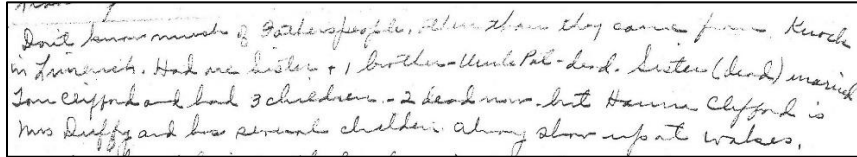 Don't know much of Fathers people, other than they came from Knock
in Limerick. Had one sister + 1 brother - Uncle Pat - dead. Sister (dead) married
Tom Clifford and had 3 children - 2 dead now - but Hanna Clifford is
Mrs Duffy and has several children always show up at wakes.